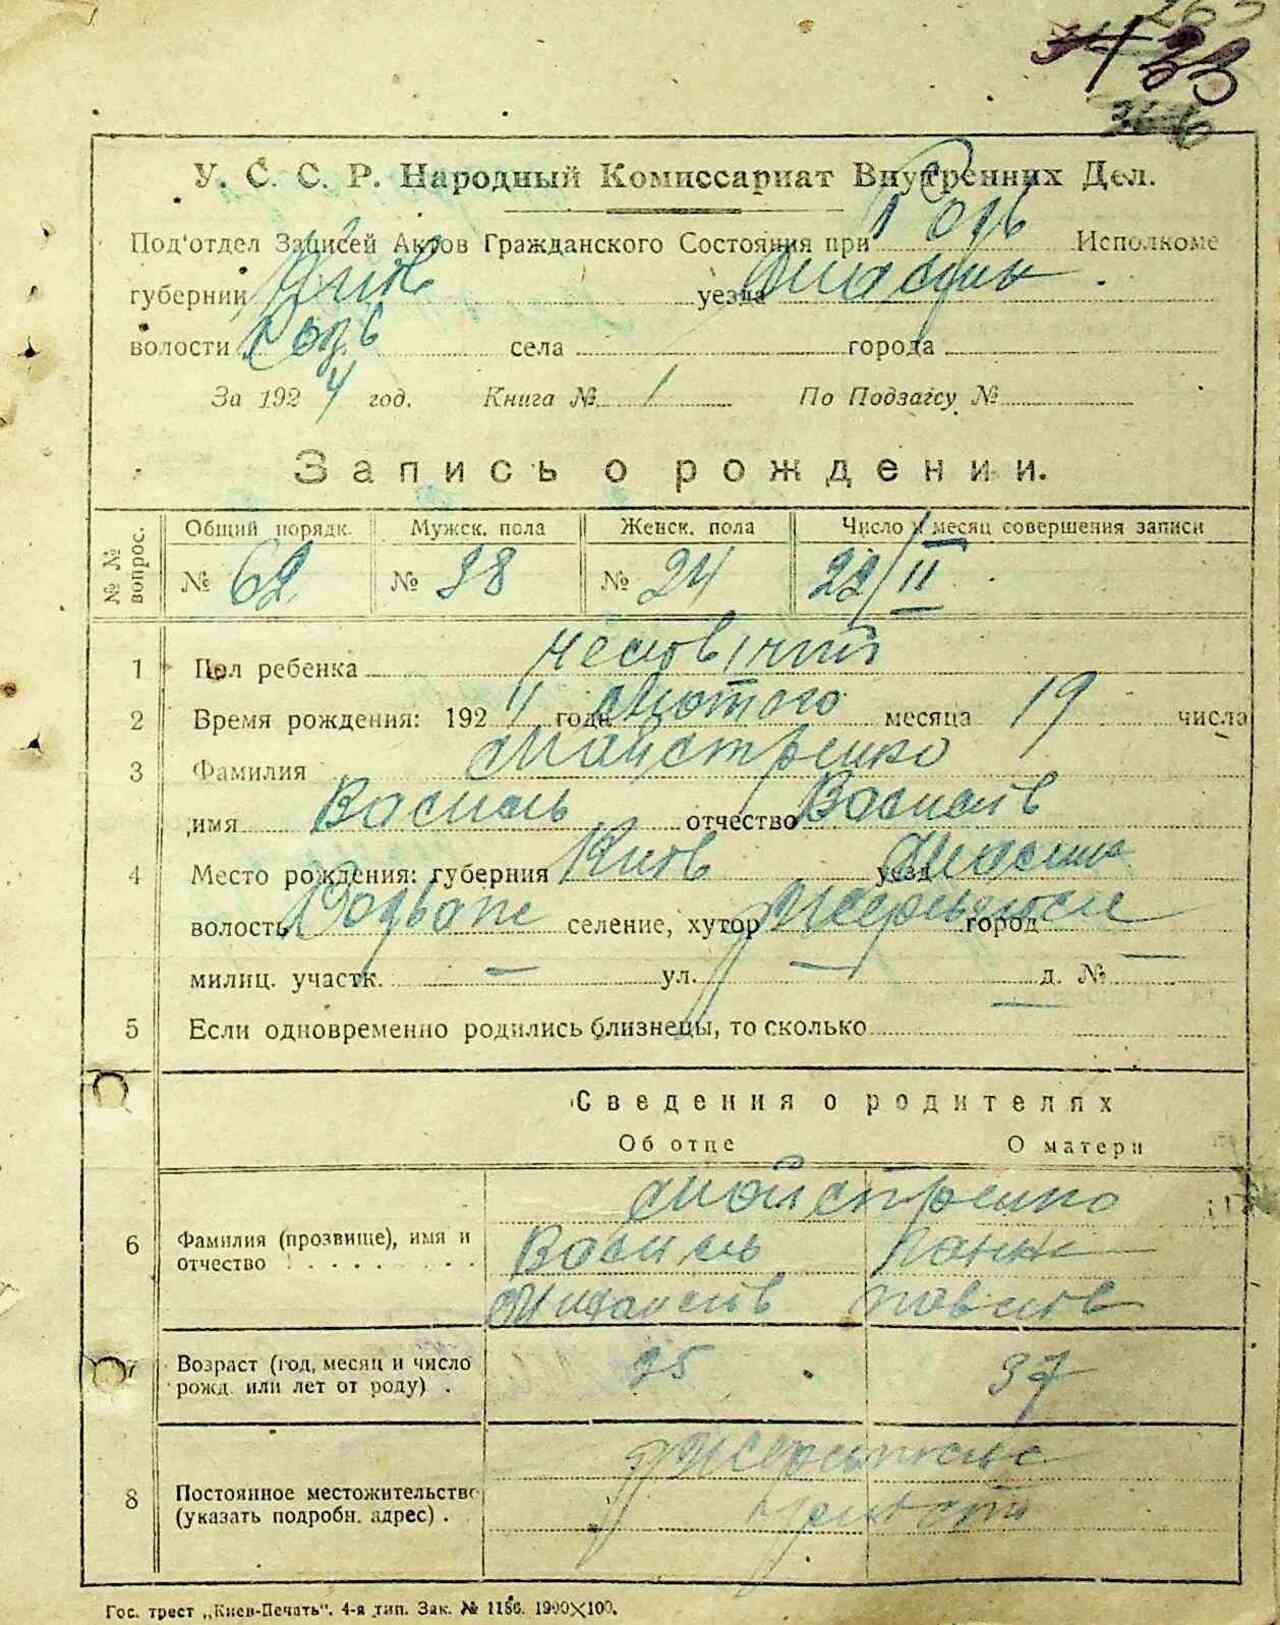 33
У. С. С. Р. Народный Комиссариат Внутренних Дел.
Под'отдел Записей Актов Гражданского Состояния при Исполкоме
губернии Київ уезда
волости села города
За 1924 год. Книга № 1 По Подзагсу №
Запись о рождении.
№№ вопрос. Общий порядк. Мужск. пола Женск. пола Число и месяц совершения записи
№ 62 № 38 № 24 22/II
1 Пол ребенка чоловічий
2 Время рождения: 1924 года Лютого месяца 19 числа
3 Фамилия Майстренко
имя Василь отчество Васильов
4 Место рождения: губерния Київ уезд
волость селение, хутор город
милиц. участк. — ул. — д. № —
5 Если одновременно родились близнецы, то сколько
Сведения о родителях
Об отце О матери
Майстренко
6 Фамилия (прозвище), имя и отчество Василь Ганна
Михайлов Павлов
7 Возраст (год, месяц и число рожд. или лет от роду) . 37
8 Постоянное местожительство (указать подробн. адрес) .
Гос. трест „Киев-Печать". 4-я тип. Зак. № 1186. 1900×100.